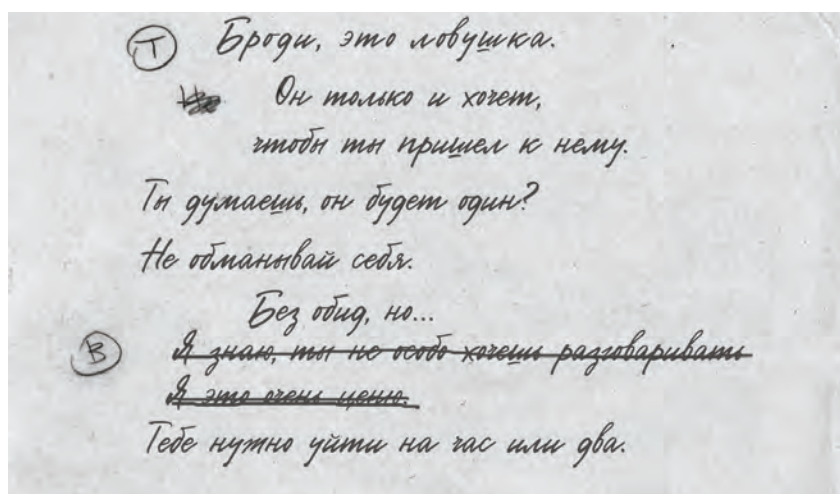 Т Броди, это ловушка.
Он только и хочет,
чтобы ты пришел к нему.
Ты думаешь, он будет один?
Не обманывай себя.
Без обид, но...
В Я знаю, ты не особо хочешь разговаривать
Я это очень ценю.
Тебе нужно уйти на час или два.